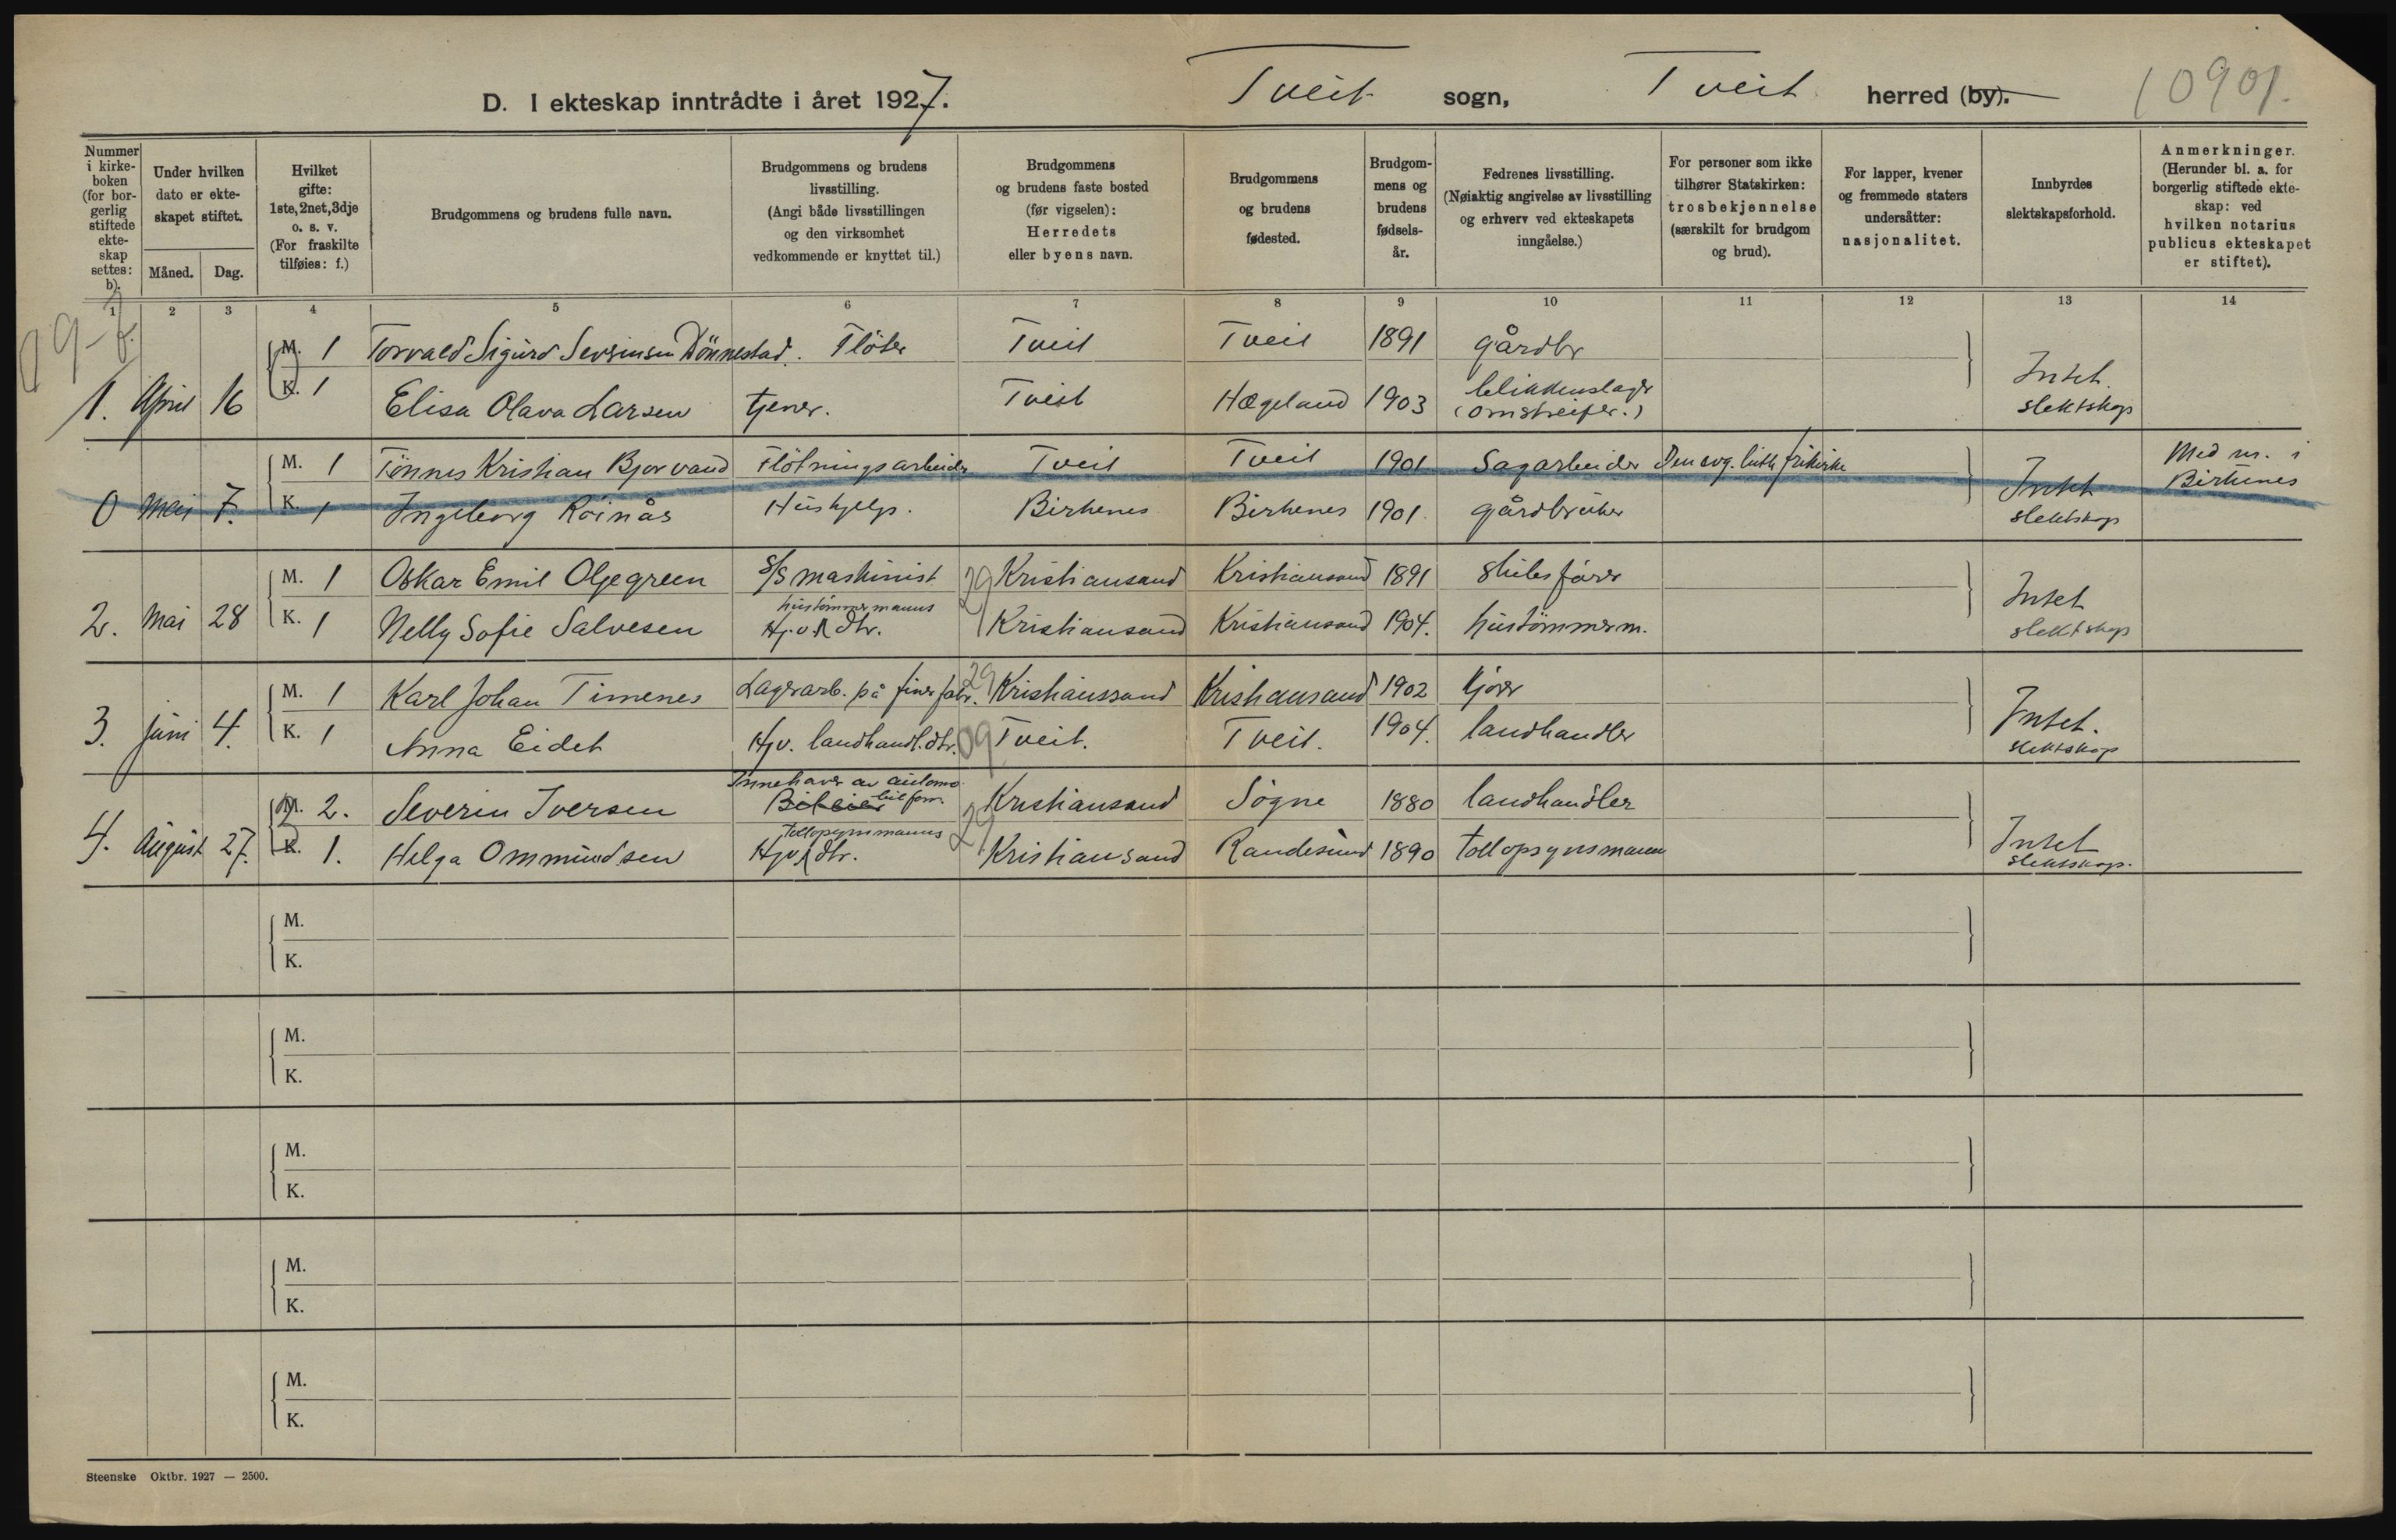 D. I ekteskap inntrådte i året 1927. Tveit sogn, Tveit herred (by). 10901.
Nummer i kirkeboken (for borgerlig stiftede ekteskap settes: b).
Under hvilken dato er ekteskapet stiftet.
Måned. Dag.
Hvilket gifte: 1ste, 2net, 3dje o. s. v. (For fraskilte tilføies: f.)
Brudgommens og brudens fulle navn.
Brudgommens og brudens livsstilling. (Angi både livsstillingen og den virksomhet vedkommende er knyttet til.)
Brudgommens og brudens faste bosted (før vigselen): Herredets eller byens navn.
Brudgommens og brudens fødested.
Brudgommens og brudens fødselsår.
Fedrenes livsstilling. (Nøiaktig angivelse av livsstilling og erhverv ved ekteskapets inngåelse.)
For personer som ikke tilhører Statskirken: trosbekjennelse (særskilt for brudgom og brud).
For lapper, kvener og fremmede staters undersåtter: nasjonalitet.
Innbyrdes slektskapsforhold.
Anmerkninger. (Herunder bl. a. for borgerlig stiftede ekteskap: ved hvilken notarius publicus ekteskapet er stiftet).
1 2 3 4 5 6 7 8 9 10 11 12 13 14
M. 1 Torvald Sigurd Sevrinsen Dönnestad. Flöter Tveit Tveit 1891 gårdbr
1. April 16 K. 1 Elisa Olava Larsen tjener. Tveit Hægeland 1903 blikkenslager (omstreifer.) Intet slektskap
M. 1 Tönnes Kristian Bjorvand Flötningsarbeider Tveit Tveit 1901 Sagarbeider Den evg. luth frikirke Med nr. i Birkenes
0 Mai 7. K. 1 Ingeborg Röinås Hushjelp. Birkenes Birkenes 1901 gårdbruker Intet slektskap
M. 1 Oskar Emil Olgegreen S/S maskinist 29 Kristiansand Kristiansand 1891 skibsförer
2. Mai 28 K. 1 Nelly Sofie Salvesen Hj. v. hustömmermanns dtr. Kristiansand Kristiansand 1904. hustömmerm. Intet slektskap
M. 1 Karl Johan Timenes Lagerarb. på finerfabr. 29 Kristianssand Kristiansand 1902 kjörer
3. Juni 4. K. 1 Anna Eidet Hjv. landhandl. dtr. 09 Tveit. Tveit. 1904. landhandler Intet. slektskap
M. 2. Severin Iversen Innehaver av automobilforr. Kristiansand Sögne 1880 landhandler
4. August 27. K. 1. Helga Ommundsen Hjv. tollopsynmanns dtr. 29 Kristiansand Randesund 1890 tollopsynsmann Intet slektskap.
M.
K.
M.
K.
M.
K.
M.
K.
M.
K.
Steenske Oktbr. 1927 — 2500.